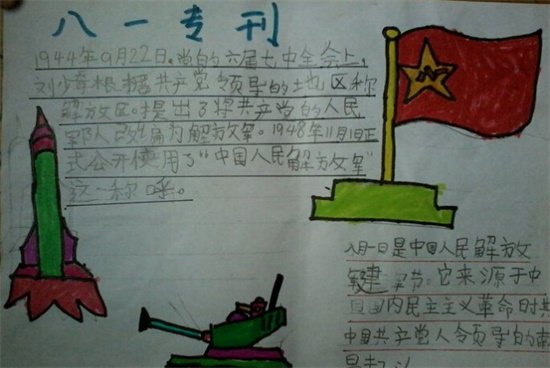 八一专刊
1944年9月22日。党的六届七中全会上,
刘少奇根据共产党领导的地区称
解放区。提出了将共产党的人民
军队改编为解放军。1948年11月1日正
式公开使用了“中国人民解放军”
这一称呼。
八月一日是中国人民解放
军建军节。它来源于中
国国内民主主义革命时共
中国共产党人领导的南
昌起义